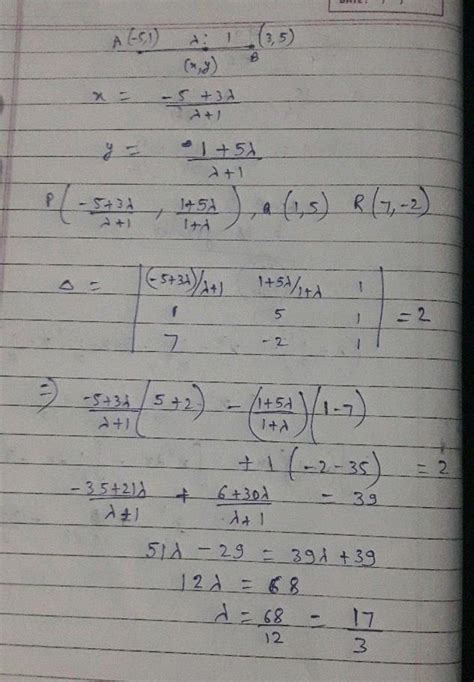 DATE:
A(-5,1) λ : 1 (3,5)
(x,y) B
x = (-5+3λ)/(λ+1)
y = (1+5λ)/(λ+1)
P((-5+3λ)/(λ+1), (1+5λ)/(1+λ)), Q(1,5) R(7,-2)
Δ = | (-5+3λ)/λ+1 1+5λ/1+λ 1 |
| 1 5 1 | = 2
| 7 -2 1 |
⇒ (-5+3λ)/(λ+1) (5+2) - ((1+5λ)/(1+λ))(1-7)
+ 1(-2-35) = 2
(-35+21λ)/(λ+1) + (6+30λ)/(λ+1) = 39
51λ - 29 = 39λ + 39
12λ = 68
λ = 68/12 = 17/3